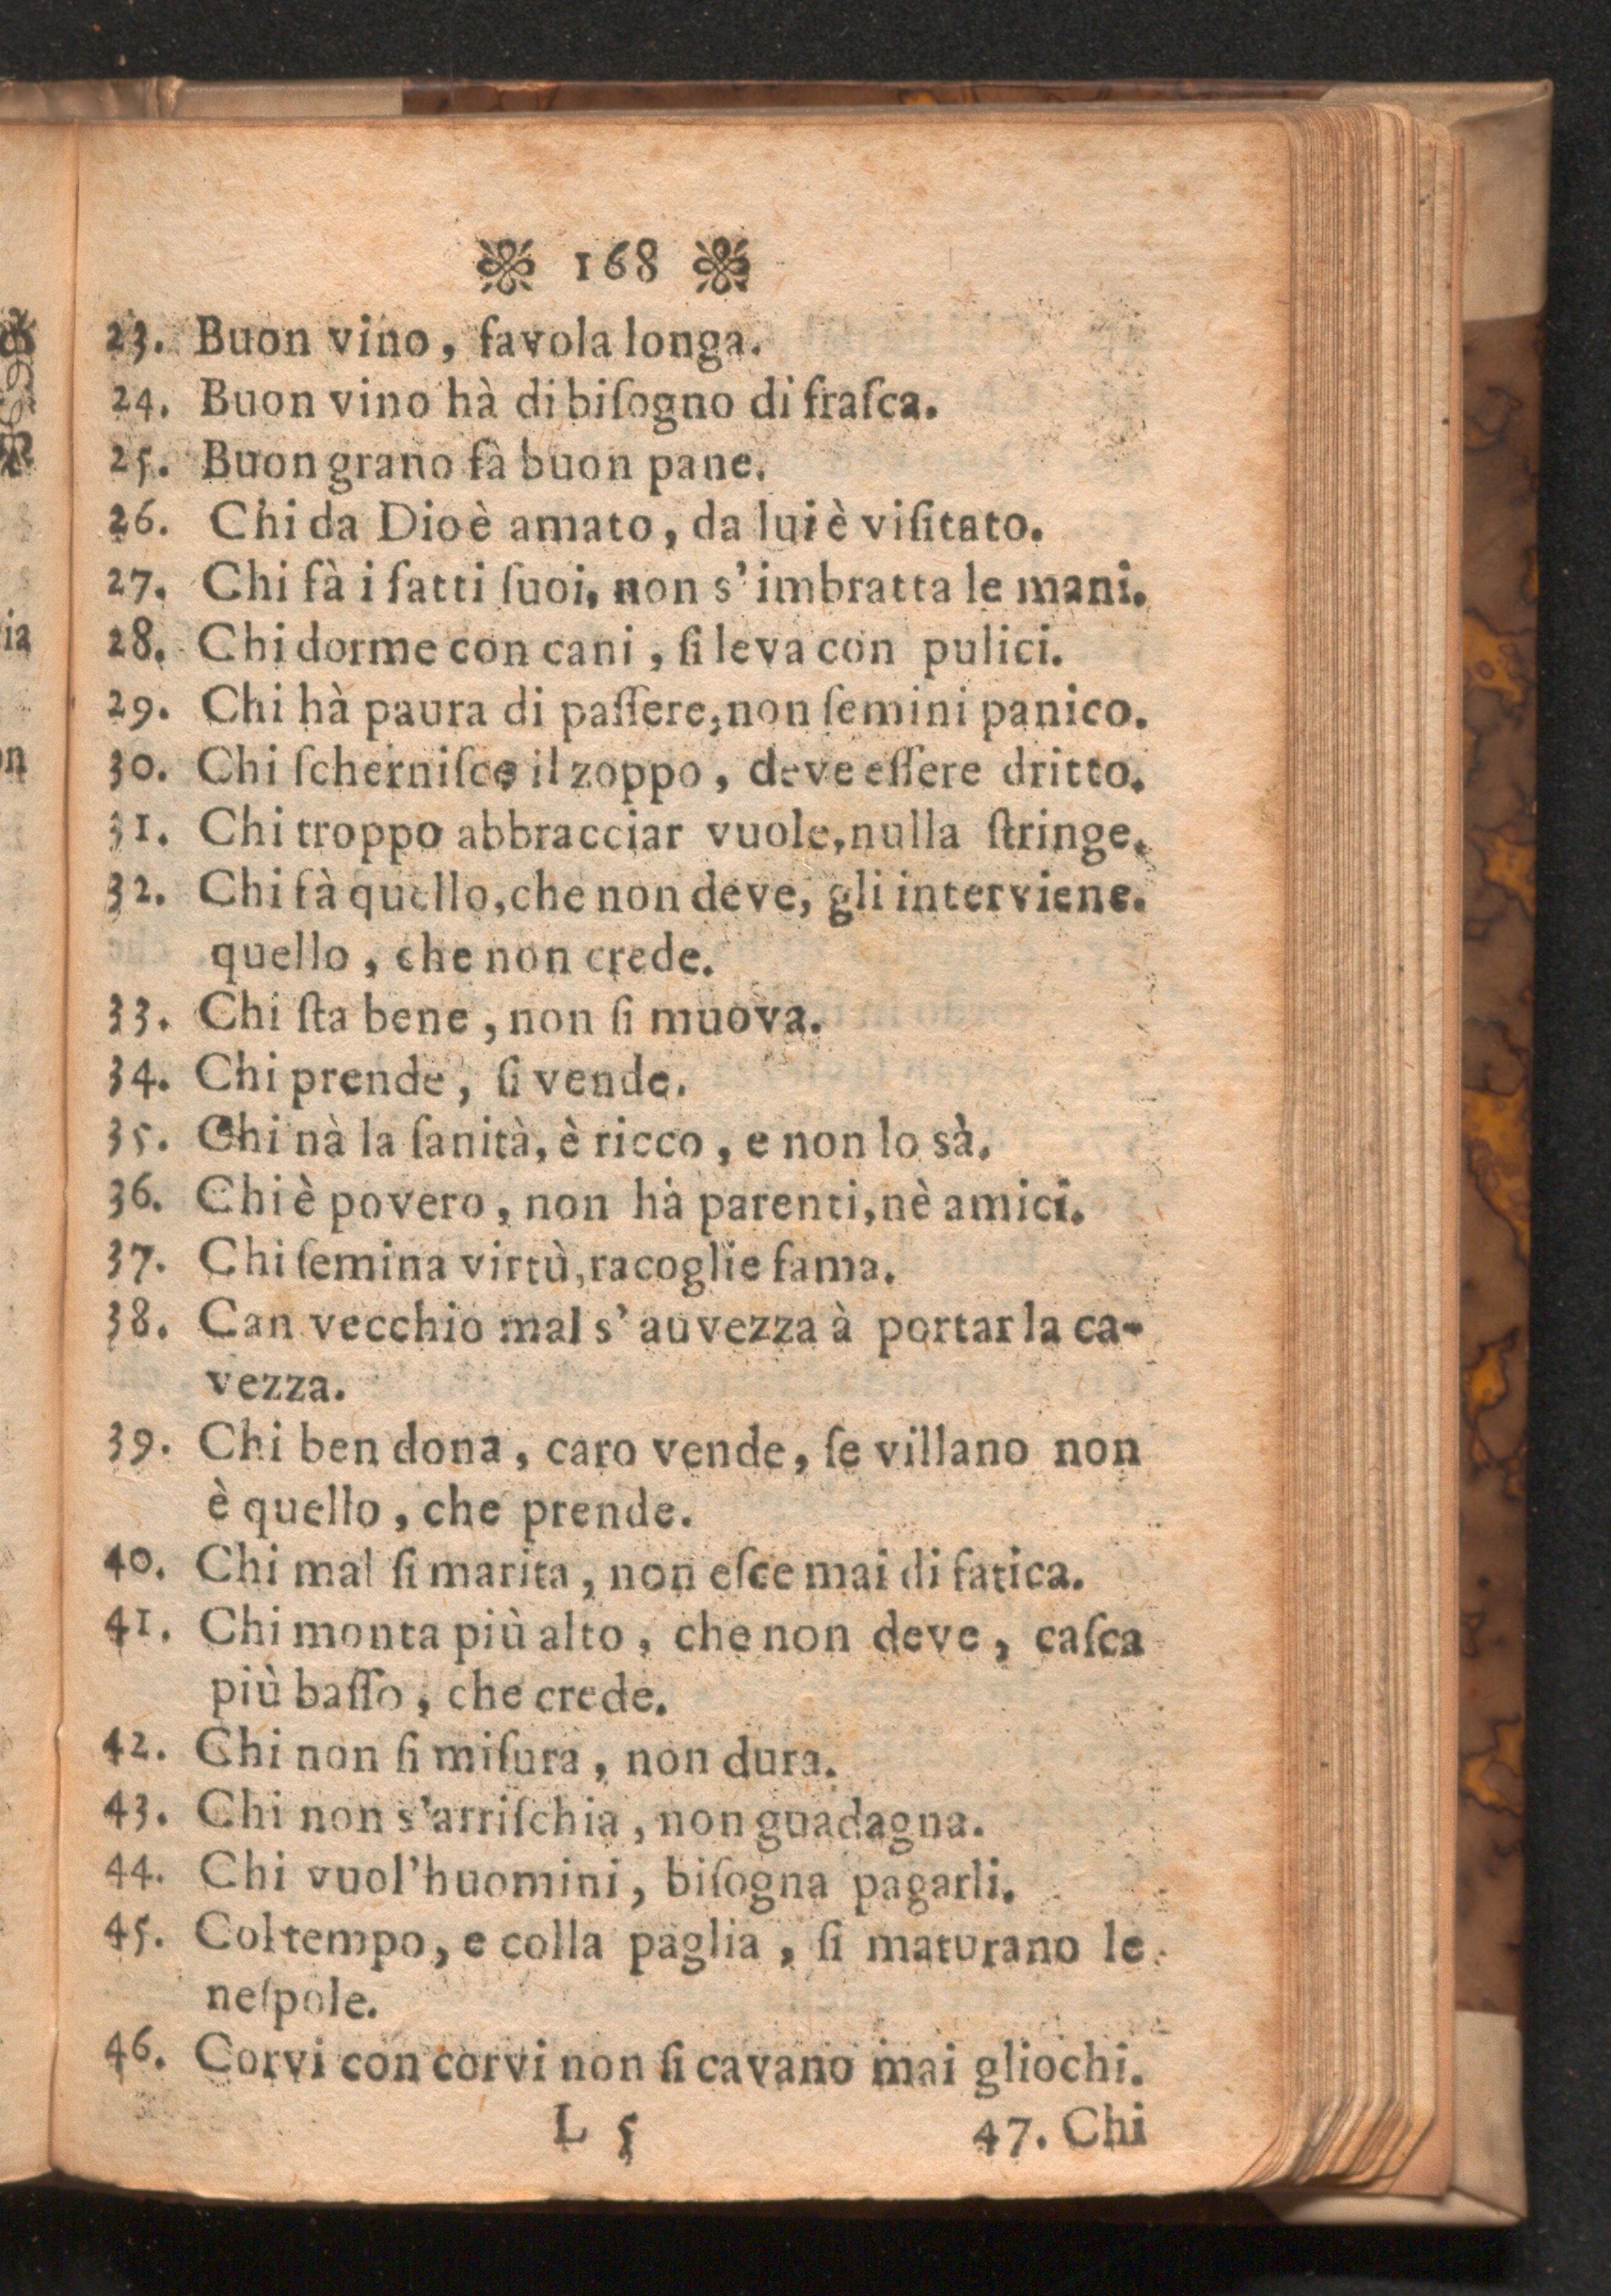 168
23. Buon vino, favola longa.
24. Buon vino hà di biſogno di fraſca.
25. Buon grano fà buon pane.
26. Chi da Dio è amato, da lui è viſitato.
27. Chi fà i fatti ſuoi, non s'imbratta le mani.
28. Chi dorme con cani, ſi leva con pulici.
29. Chi hà paura di paſſere, non ſemini panico.
30. Chi ſcherniſce il zoppo, deve eſſere dritto.
31. Chi troppo abbracciar vuole, nulla ſtringe.
32. Chi fà quello, che non deve, gli interviene.
quello, che non crede.
33. Chi ſta bene, non ſi muova.
34. Chi prende, ſi vende.
35. Chi nà la ſanità, è ricco, e non lo sà.
36. Chi è povero, non hà parenti, nè amici.
37. Chi ſemina virtù, racoglie fama.
38. Can vecchio mal s'auvezza à portar la ca-
vezza.
39. Chi ben dona, caro vende, ſe villano non
è quello, che prende.
40. Chi mal ſi marita, non eſce mai di fatica.
41. Chi monta più alto, che non deve, caſca
più baſſo, che crede.
42. Chi non ſi miſura, non dura.
43. Chi non s'arriſchia, non guadagna.
44. Chi vuol'huomini, biſogna pagarli.
45. Col tempo, e colla paglia, ſi maturano le
neſpole.
46. Corvi con corvi non ſi cavano mai gliochi.
L 5 47. Chi